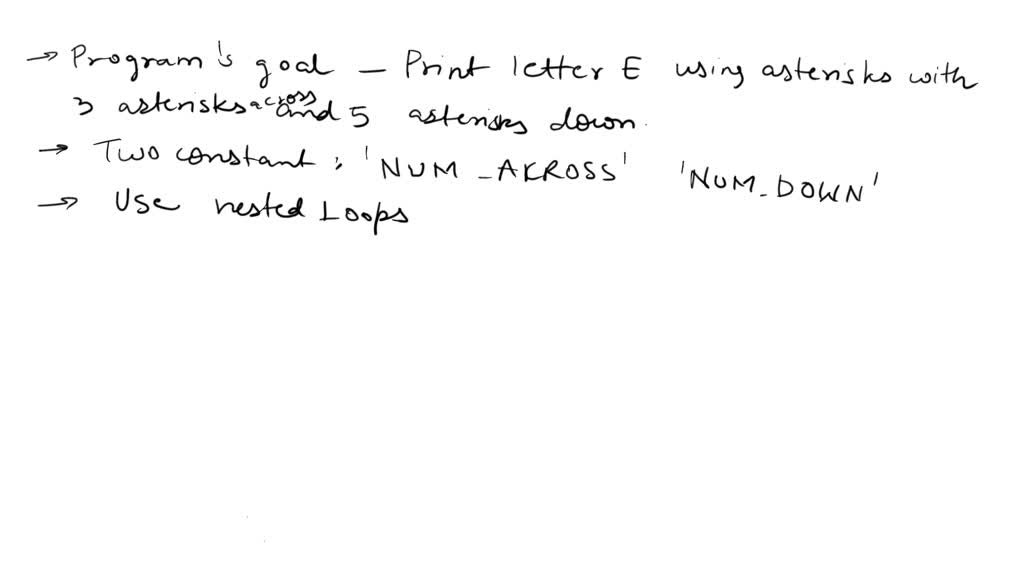 → Program's goal – Print letter E using asterisks with
3 asterisks across and 5 asterisks down.
→ Two constant : 'NUM_AKROSS' 'NUM_DOWN'
→ Use nested Loops